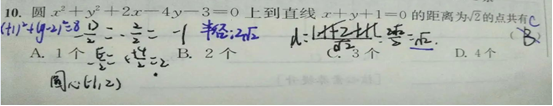 10. 圆 x²+y²+2x-4y-3=0 上到直线 x+y+1=0 的距离为√2的点共有 C
(+1)²+(y-2)²=8 D/2=-2/2=-1 半径:2√2 d=|-1+2+1|/√2=2√2/2=√2. ( B )
A. 1 个 B. 2 个 C. 3 个 D. 4 个
圆心(-1,2)